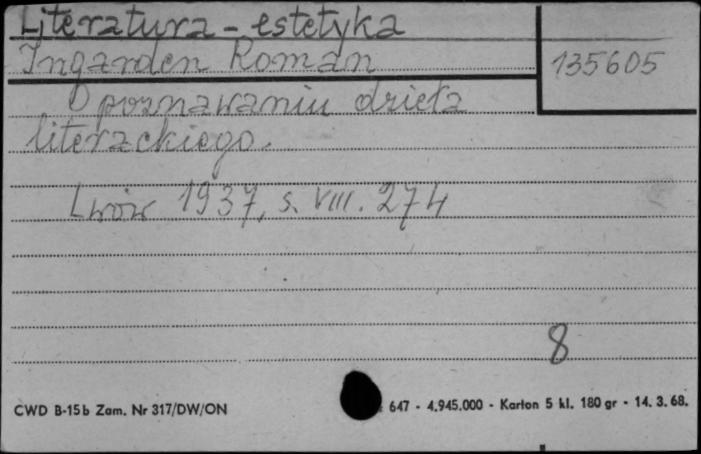 Literatura - estetyka
Ingarden Roman
135605
O poznawaniu dzieła
literackiego.
Lwów 1937, s. VIII. 274
8
CWD B-15b Zam. Nr 317/DW/ON
647 - 4.945.000 - Karton 5 kl. 180 gr - 14. 3. 68.